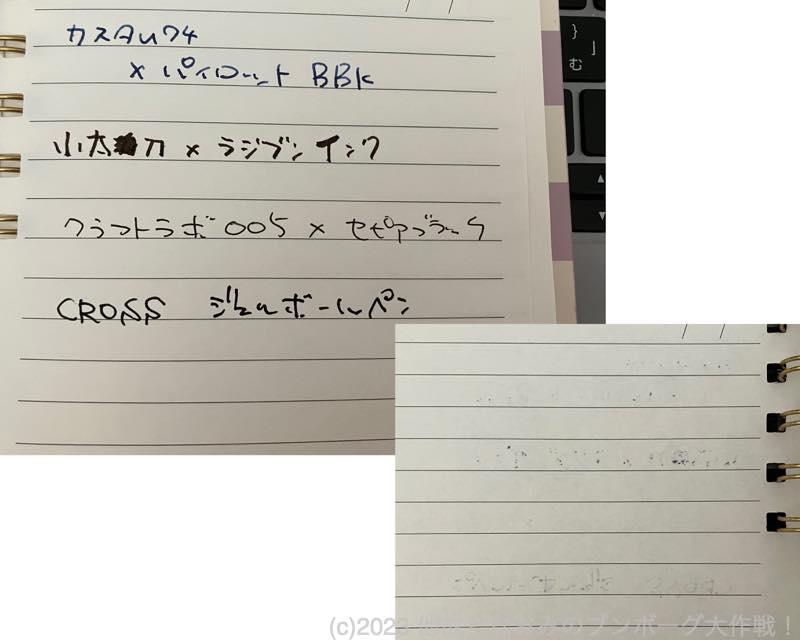 カスタム74
× パイロット BBK
小太刀 × ラジブンインク
クラフトラボ005 × セピアブラック
CROSS ジェルボールペン
}
」
む
▲
▼
(c)202 のブンボーグ大作戦！